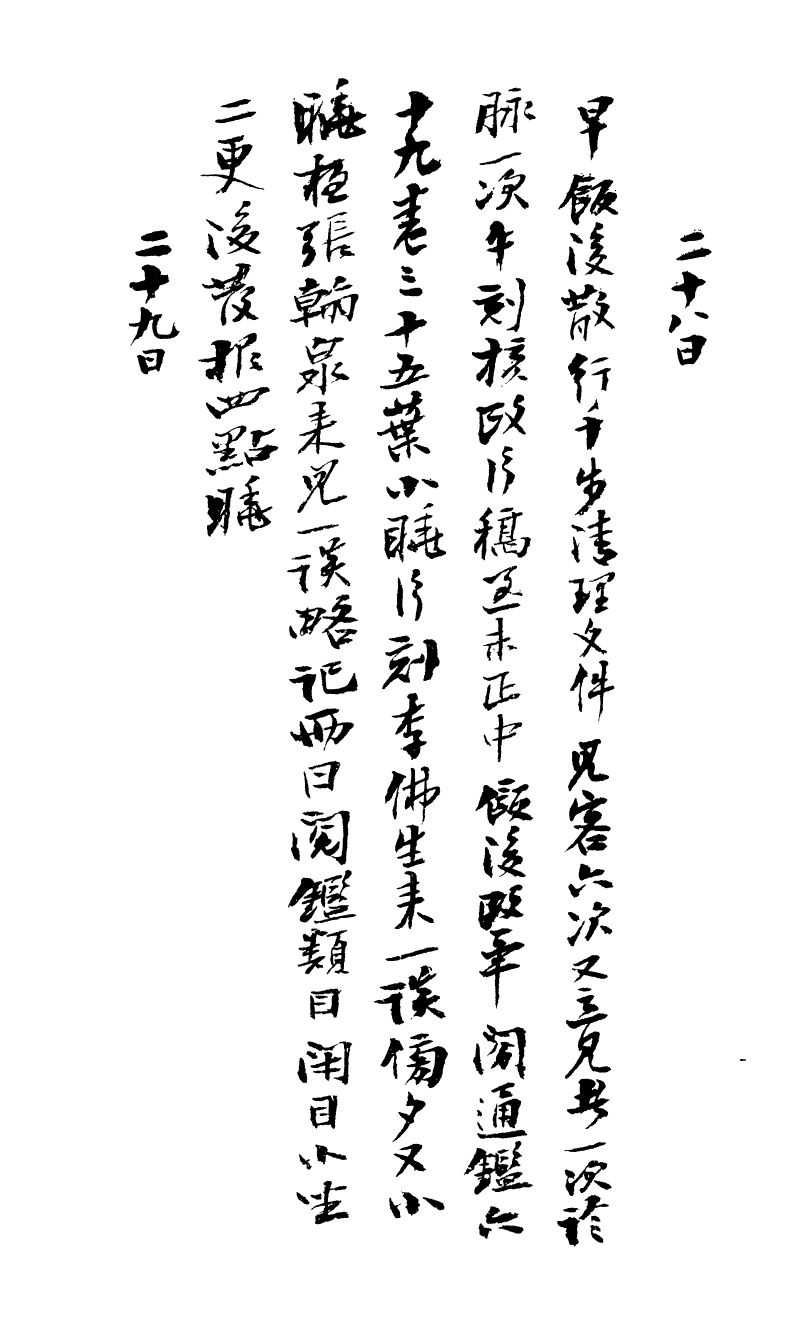 二十八日
早飯後散行千步清理文件見客六次又立見者一次診
脈一次午刻核改信稿至未正中飯後改畢閱通鑑六
十九卷三十五葉小睡片刻李佛生來一談傍夕又小
睡極張翰泉來見一談略記冊日閱鑑類目閉目小坐
二更後發報四點睡
二十九日